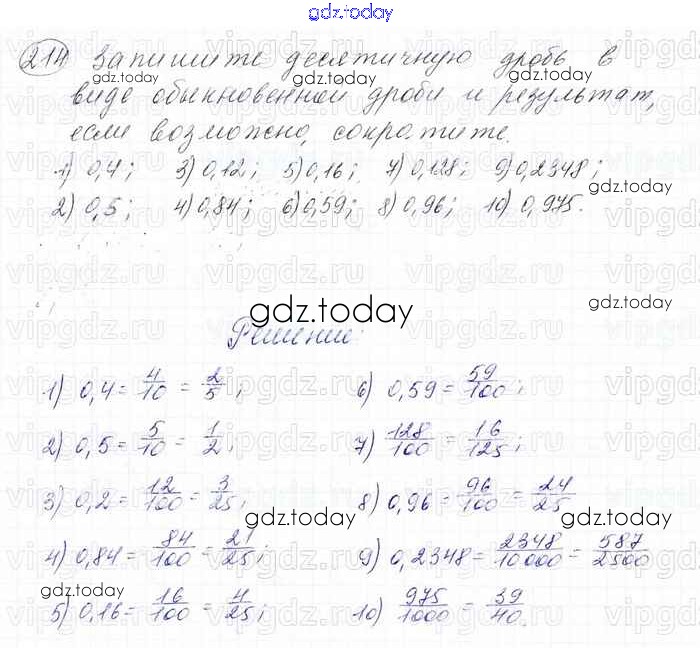 gdz.today
214 Запишите десятичную дробь в
виде обыкновенной дроби и результат,
если возможно, сократите.
1) 0,4; 3) 0,12; 5) 0,16; 7) 0,128; 9) 0,2348;
2) 0,5; 4) 0,84; 6) 0,59; 8) 0,96; 10) 0,975.
Решение:
1) 0,4 = 4/10 = 2/5;
2) 0,5 = 5/10 = 1/2;
3) 0,2 = 12/100 = 3/25;
4) 0,84 = 84/100 = 21/25;
5) 0,16 = 16/100 = 4/25;
6) 0,59 = 59/100;
7) 128/100 = 16/125;
8) 0,96 = 96/100 = 24/25
9) 0,2348 = 2348/10000 = 587/2500
10) 975/1000 = 39/40.
gdz.today
gdz.today
gdz.today
gdz.today
gdz.today
gdz.today
gdz.today
gdz.today
gdz.today
vipgdz.ru